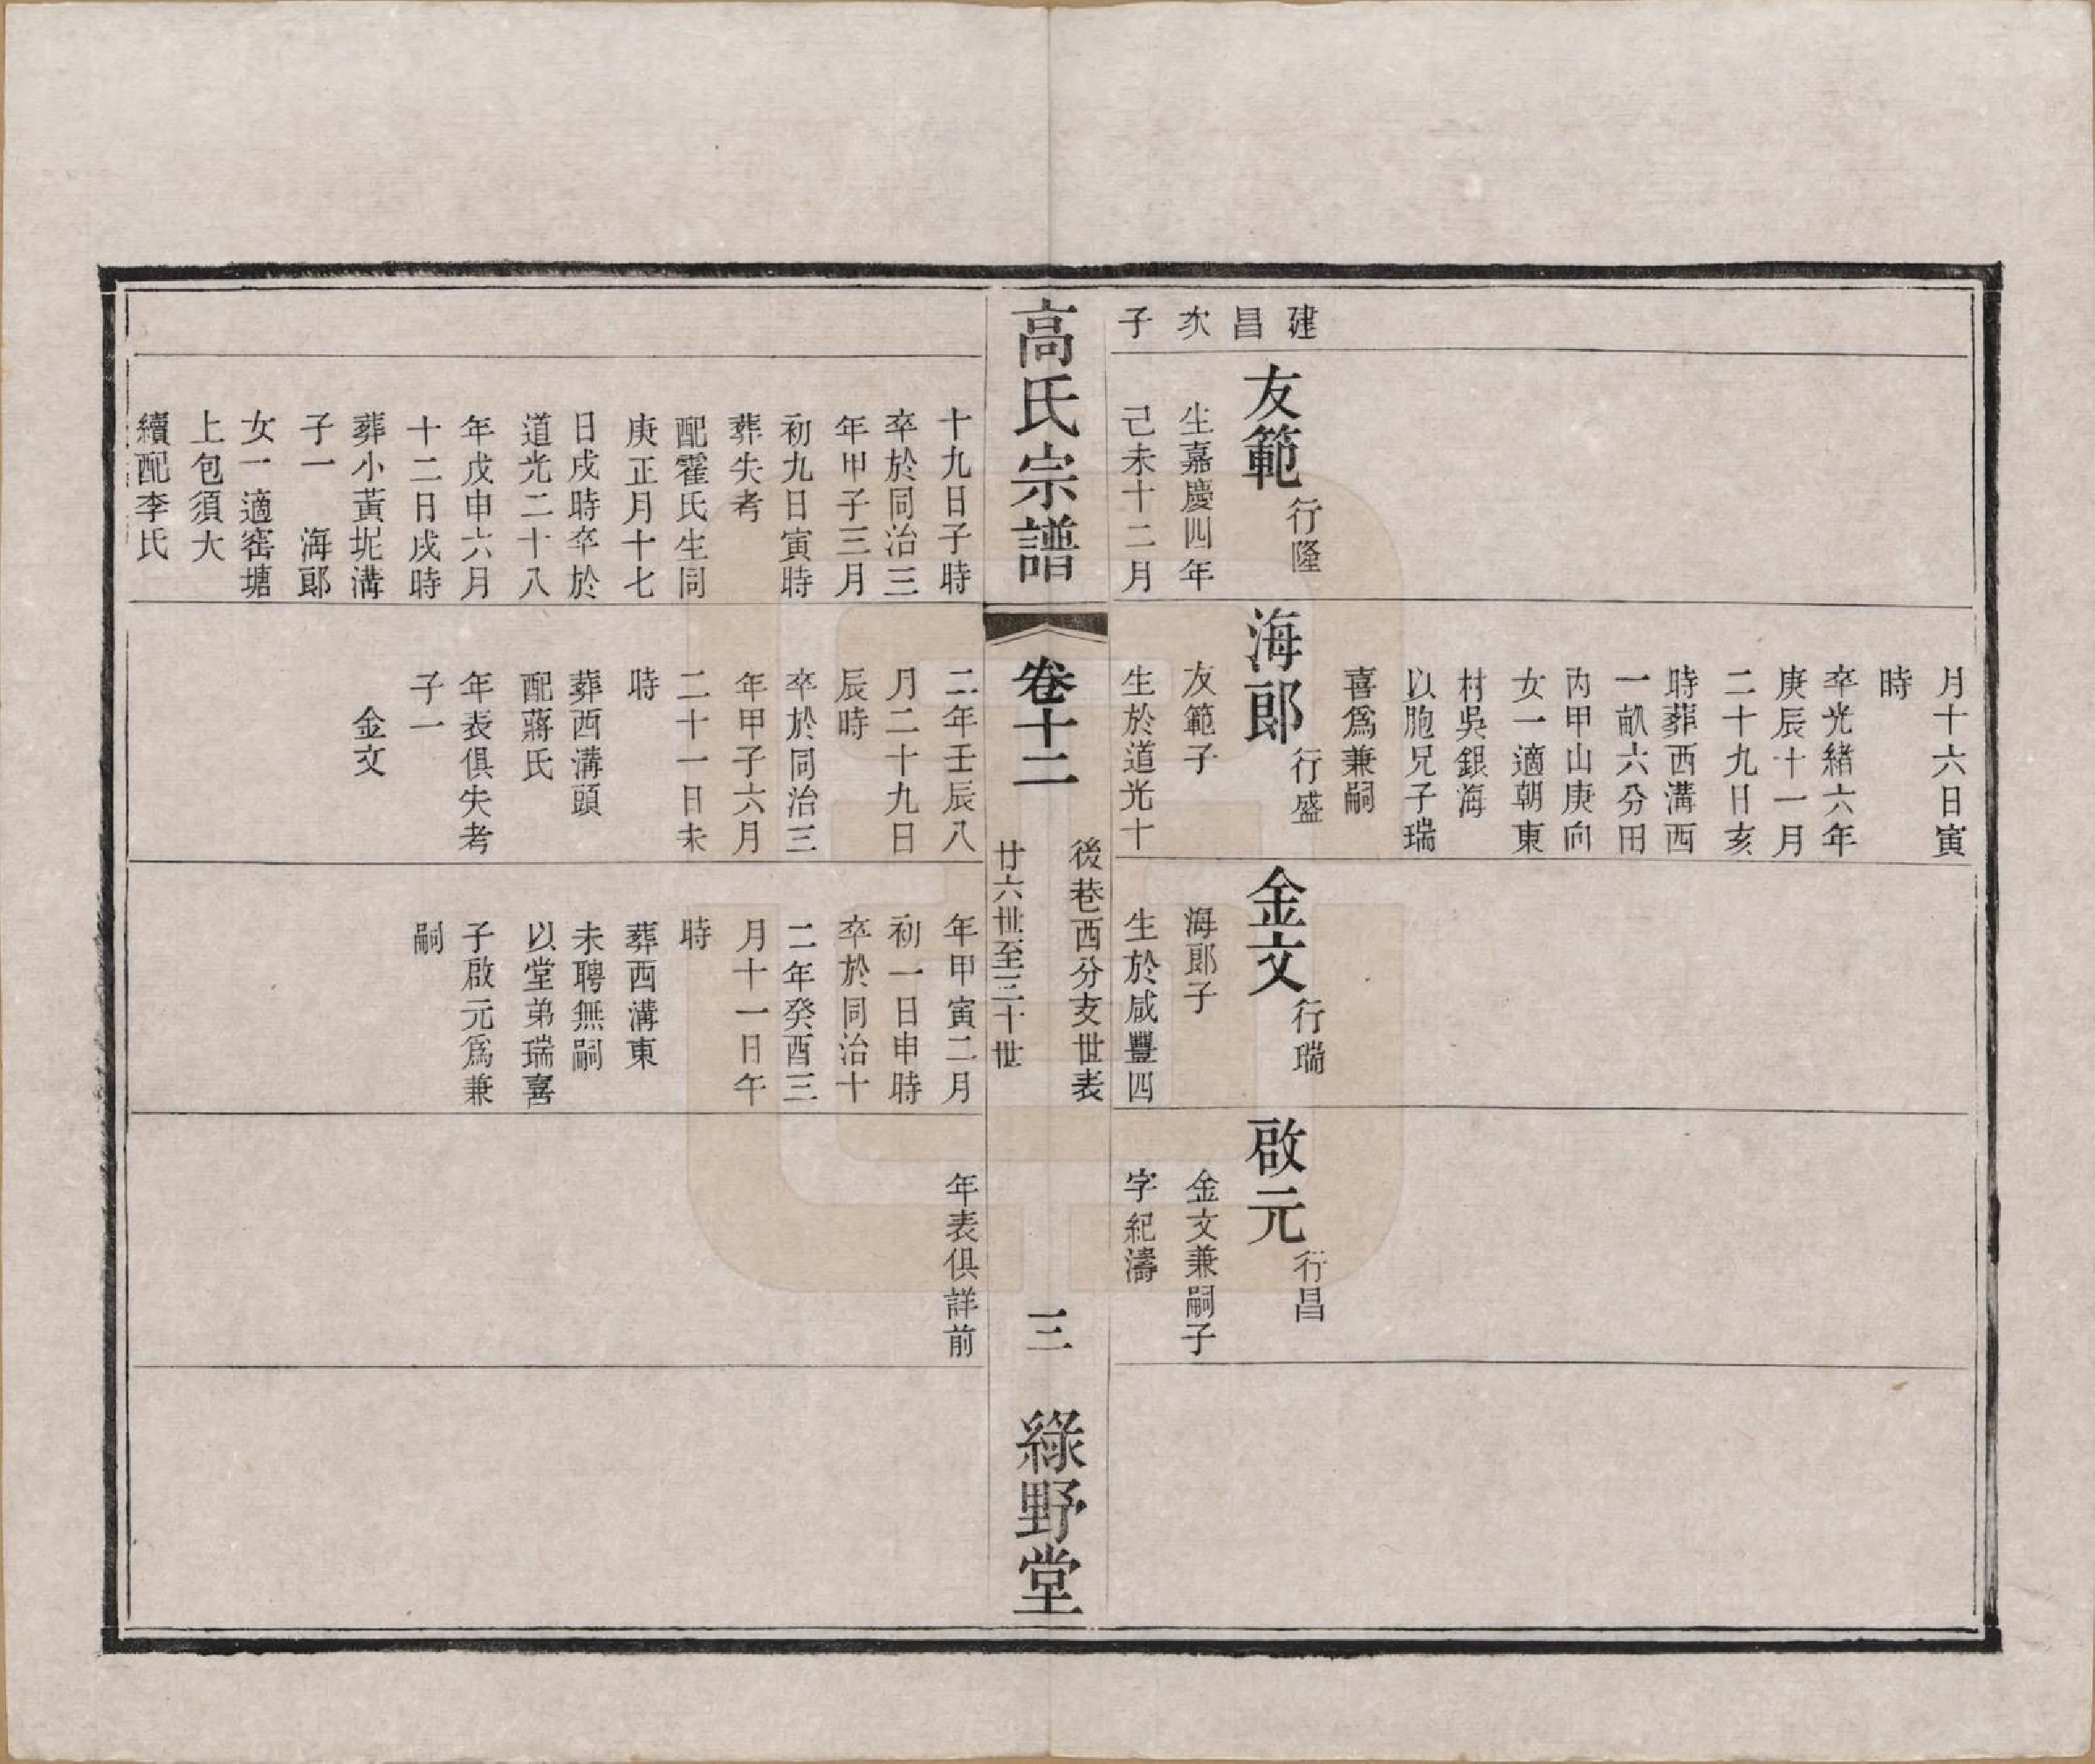 建
昌
次
子
友範
行隆
生嘉慶四年
己未十二月
月十六日寅
時
卒光緒六年
庚辰十一月
二十九日亥
時葬西溝西
一畝六分田
丙甲山庚向
女一適朝東
村吳銀海
以胞兄子瑞
喜爲兼嗣
海郎
行盛
友範子
生於道光十
金文
行瑞
海郎子
生於咸豐四
啟元
行昌
金文兼嗣子
字紀濤
高氏宗譜
卷十二
後巷西分支世表
廿六世至三十世
三
綠野堂
十九日子時
卒於同治三
年甲子三月
初九日寅時
葬失考
配霍氏生同
庚正月十七
日戌時卒於
道光二十八
年戊申六月
十二日戌時
葬小黃坭溝
子一 海郎
女一適窰塘
上包須大
續配李氏
二年壬辰八
月二十九日
辰時
卒於同治三
年甲子六月
二十一日未
時
葬西溝頭
配蔣氏
年表俱失考
子一
金文
年甲寅二月
初一日申時
卒於同治十
二年癸酉三
月十一日午
時
葬西溝東
未聘無嗣
以堂弟瑞喜
子啟元爲兼
嗣
年表俱詳前